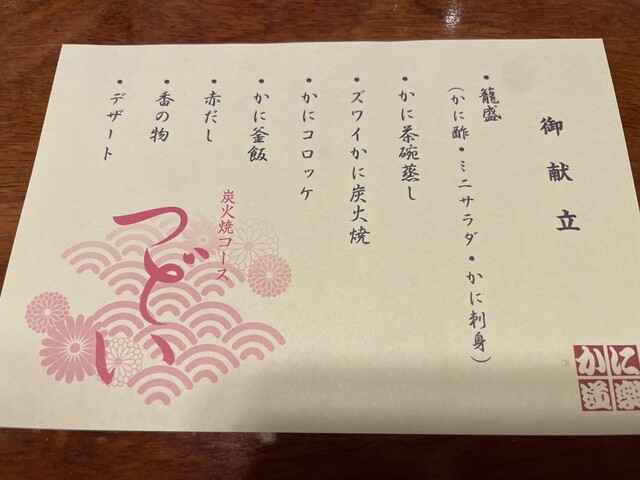 御献立
・籠盛
(かに酢・ミニサラダ・かに刺身)
・かに茶碗蒸し
・ズワイかに炭火焼
・かにコロッケ
・かに釜飯
・赤だし
・香の物
・デザート
炭火焼コース
つどい
かに
道楽